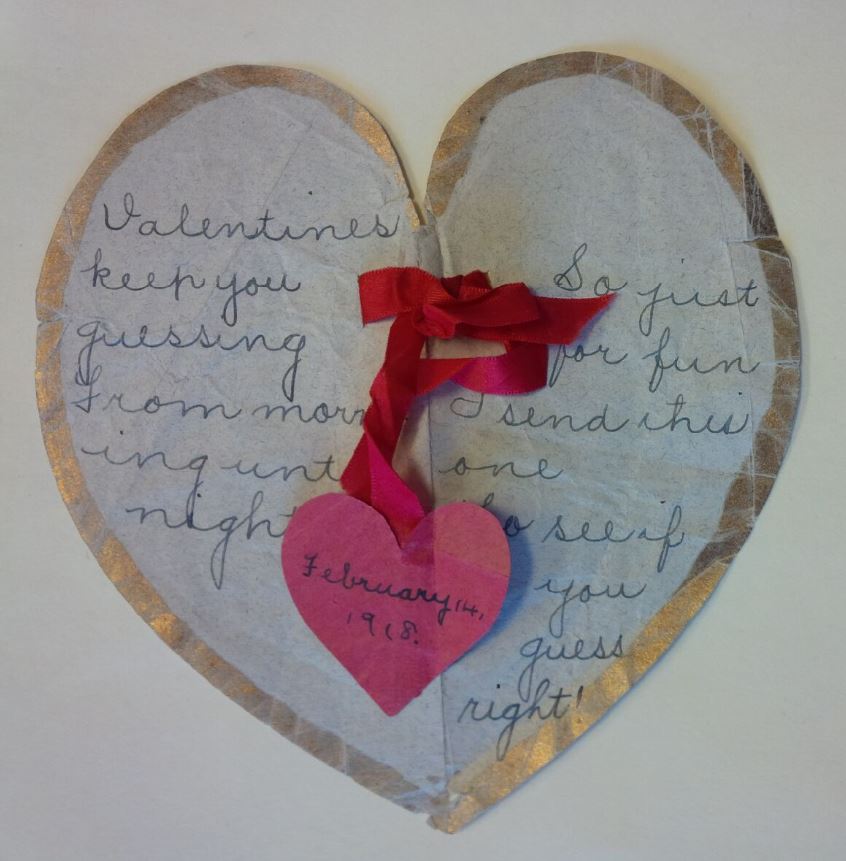 Valentines
keep you
guessing
From morn
ing unt
night
So just
for fun
I send this
one
To see if
you
guess
right!
February 14,
1918.